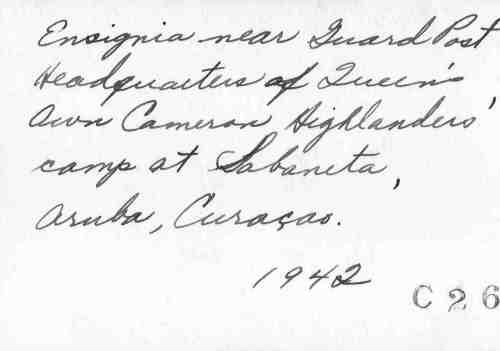 Ensignia near Guard Post
Headquarters of Queen's
Own Cameron Highlanders'
camp at Sabaneta,
Aruba, Curaçao.
1942
C 26